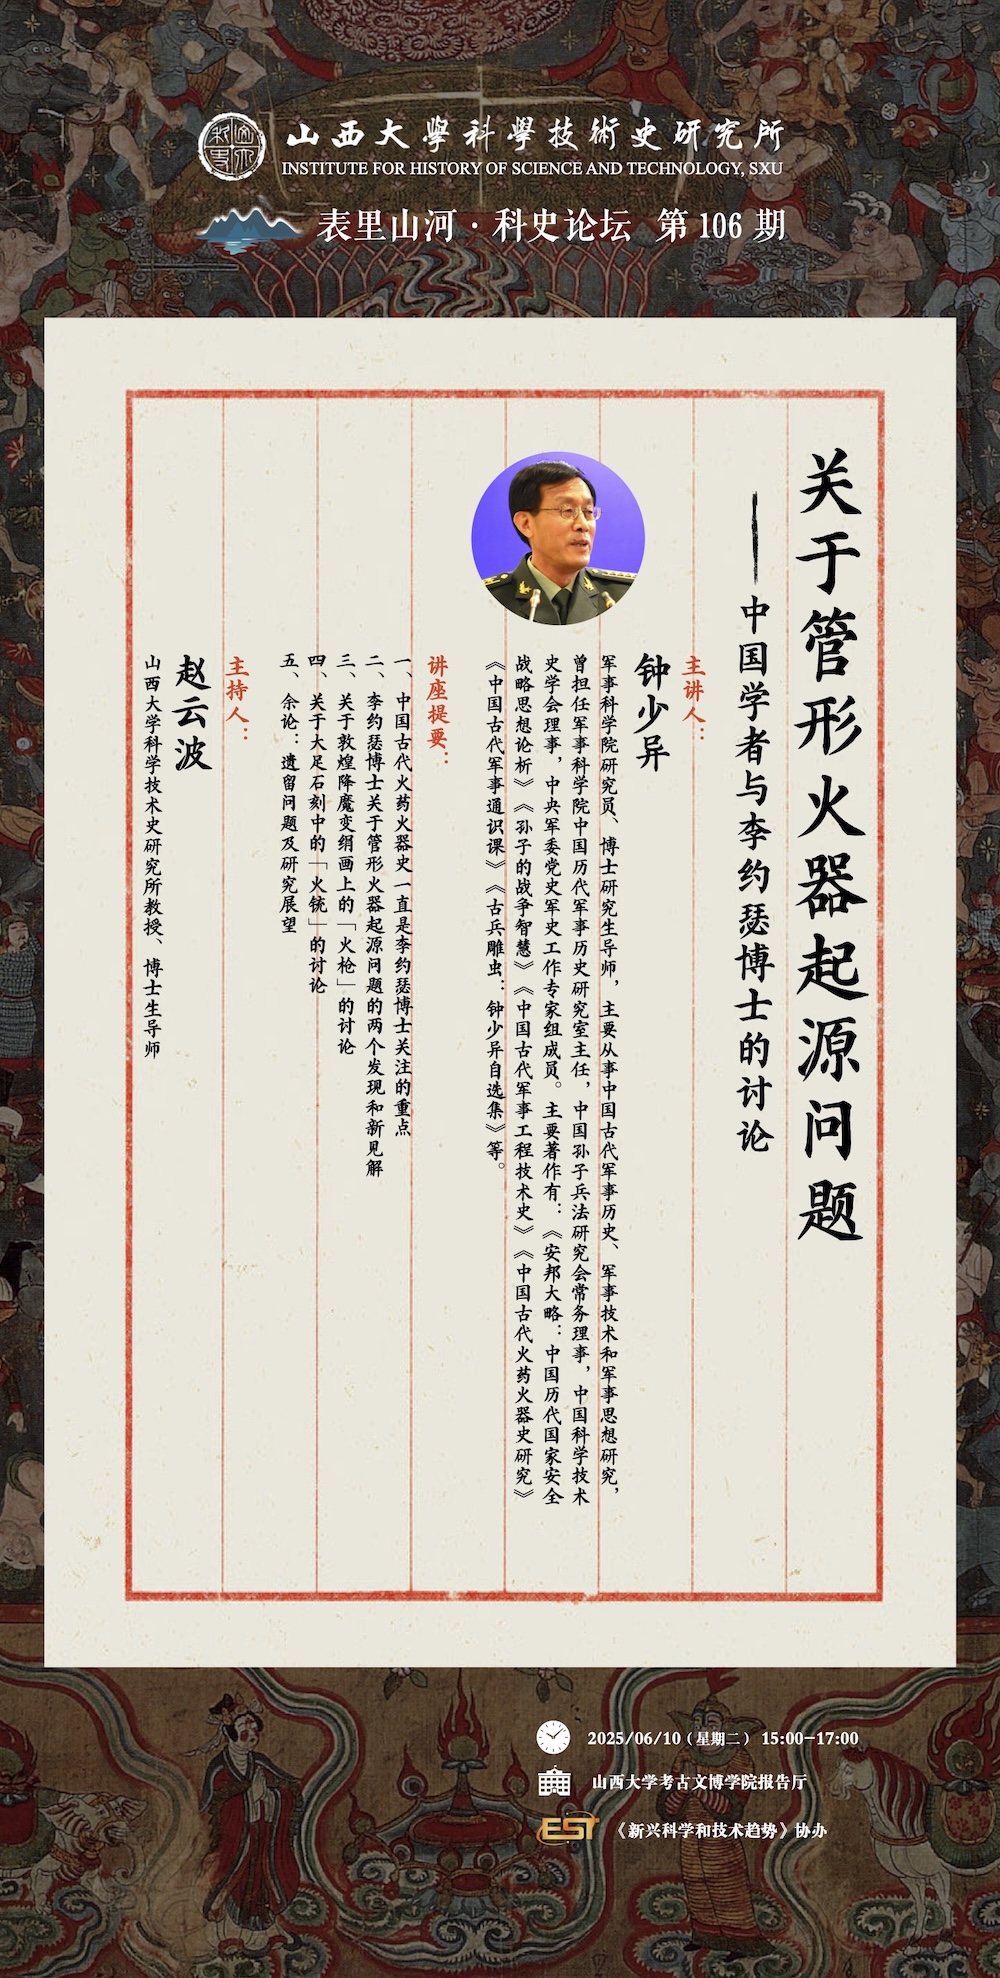 山西大學科學技術史研究所
INSTITUTE FOR HISTORY OF SCIENCE AND TECHNOLOGY, SXU
表里山河·科史论坛 第 106 期
关于管形火器起源问题
——中国学者与李约瑟博士的讨论
主讲人：
钟少异
军事科学院研究员、博士研究生导师，主要从事中国古代军事历史、军事技术和军事思想研究，
曾担任军事科学院中国历代军事历史研究室主任，中国孙子兵法研究会常务理事，中国科学技术
史学会理事，中央军委党史军史工作专家组成员。主要著作有：《安邦大略：中国历代国家安全
战略思想论析》《孙子的战争智慧》《中国古代军事工程技术史》《中国古代火药火器史研究》
《中国古代军事通识课》《古兵雕虫：钟少异自选集》等。
讲座提要：
一、中国古代火药火器史一直是李约瑟博士关注的重点
二、李约瑟博士关于管形火器起源问题的两个发现和新见解
三、关于敦煌降魔变绢画上的「火枪」的讨论
四、关于大足石刻中的「火铳」的讨论
五、余论：遗留问题及研究展望
主持人：
赵云波
山西大学科学技术史研究所教授、博士生导师
2025/06/10（星期二） 15:00-17:00
山西大学考古文博学院报告厅
EST 《新兴科学和技术趋势》协办